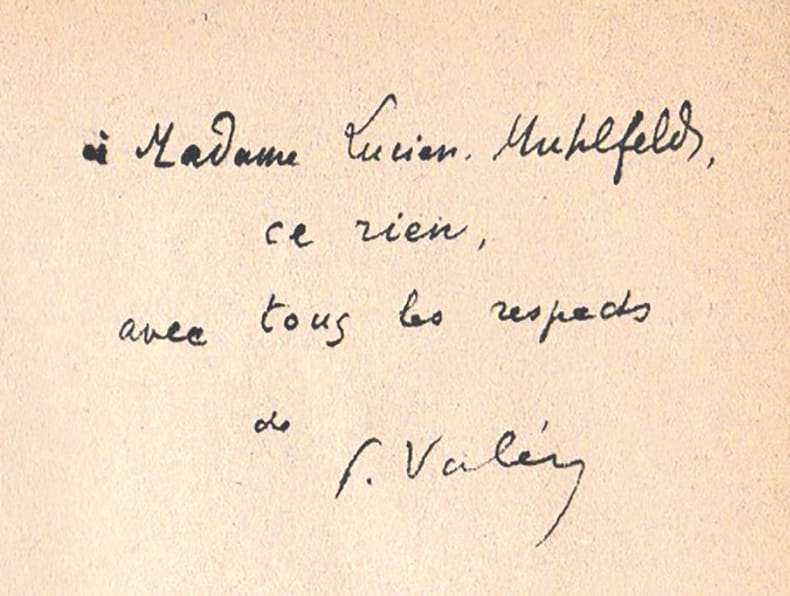 à Madame Lucien. Muhlfeld,
ce rien,
avec tous les respects
de
P. Valéry